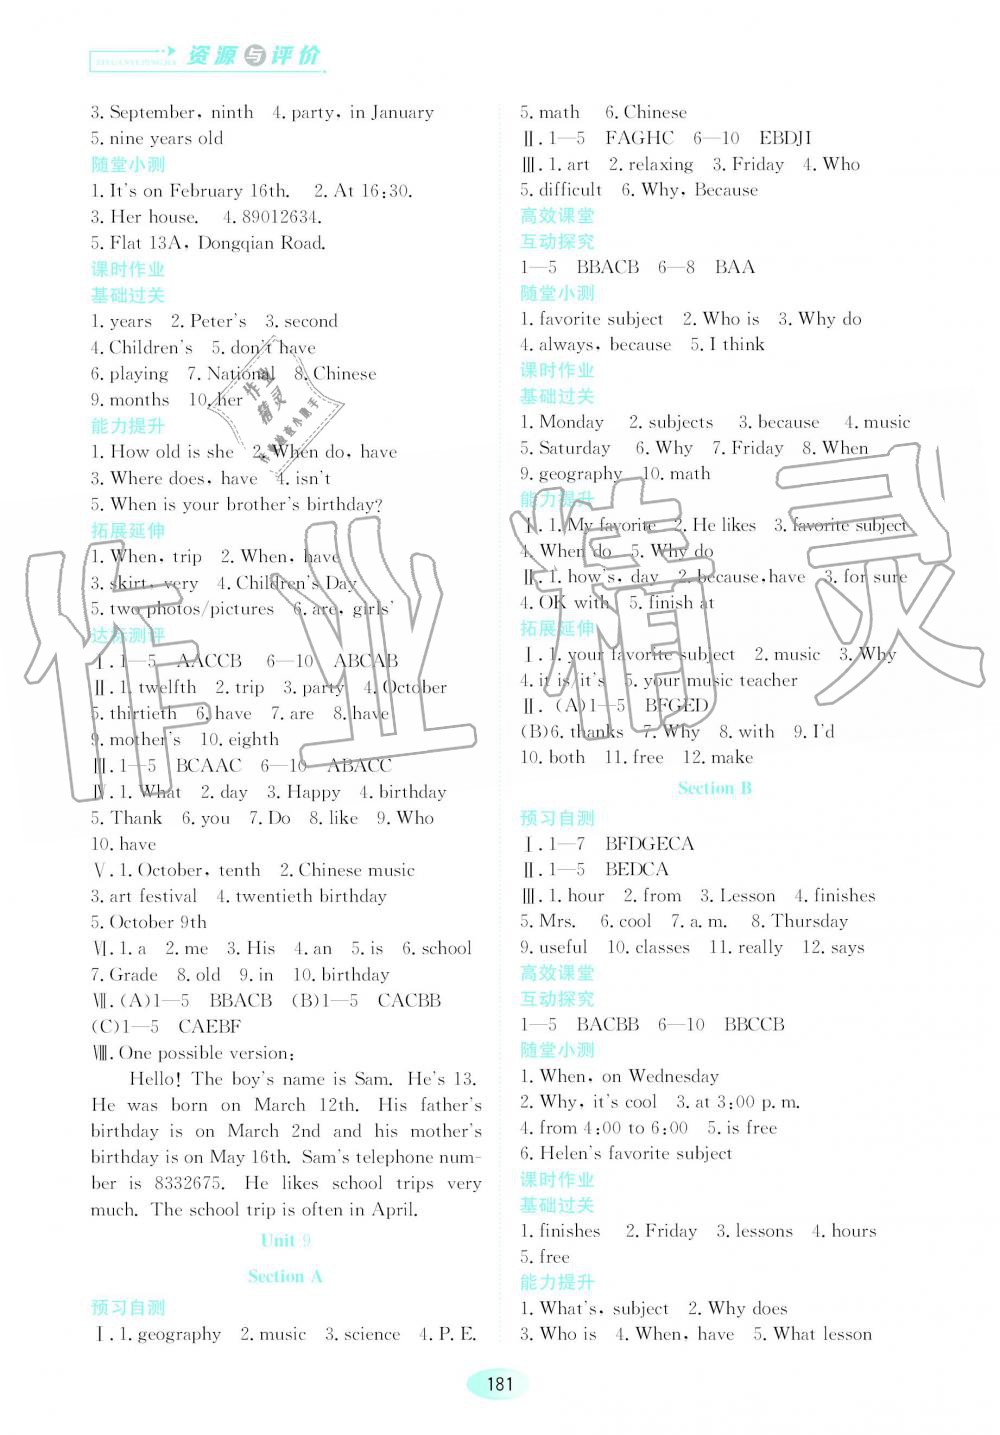 ZIYUANYUPINGJIA
资源与评价
3. September, ninth  4. party, in January
5. nine years old
随堂小测
1. It's on February 16th.  2. At 16:30.
3. Her house.  4. 89012634.
5. Flat 13A, Dongqian Road.
课时作业
基础过关
1. years  2. Peter's  3. second
4. Children's  5. don't have
6. playing  7. National  8. Chinese
9. months  10. her
能力提升
1. How old is she  2. When do, have
3. Where does, have  4. isn't
5. When is your brother's birthday?
拓展延伸
1. When, trip  2. When, have
3. skirt, very  4. Children's Day
5. two photos/pictures  6. are, girls'
达标测评
Ⅰ. 1—5  AACCB  6—10  ABCAB
Ⅱ. 1. twelfth  2. trip  3. party  4. October
5. thirtieth  6. have  7. are  8. have
9. mother's  10. eighth
Ⅲ. 1—5  BCAAC  6—10  ABACC
Ⅳ. 1. What  2. day  3. Happy  4. birthday
5. Thank  6. you  7. Do  8. like  9. Who
10. have
Ⅴ. 1. October, tenth  2. Chinese music
3. art festival  4. twentieth birthday
5. October 9th
Ⅵ. 1. a  2. me  3. His  4. an  5. is  6. school
7. Grade  8. old  9. in  10. birthday
Ⅶ. (A)1—5  BBACB  (B)1—5  CACBB
(C)1—5  CAEBF
Ⅷ. One possible version:
Hello! The boy's name is Sam. He's 13.
He was born on March 12th. His father's
birthday is on March 2nd and his mother's
birthday is on May 16th. Sam's telephone num-
ber is 8332675. He likes school trips very
much. The school trip is often in April.
Unit 9
Section A
预习自测
Ⅰ. 1. geography  2. music  3. science  4. P. E.
5. math  6. Chinese
Ⅱ. 1—5  FAGHC  6—10  EBDJI
Ⅲ. 1. art  2. relaxing  3. Friday  4. Who
5. difficult  6. Why, Because
高效课堂
互动探究
1—5  BBACB  6—8  BAA
随堂小测
1. favorite subject  2. Who is  3. Why do
4. always, because  5. I think
课时作业
基础过关
1. Monday  2. subjects  3. because  4. music
5. Saturday  6. Why  7. Friday  8. When
9. geography  10. math
能力提升
Ⅰ. 1. My favorite  2. He likes  3. favorite subject
4. When do  5. Why do
Ⅱ. 1. how's, day  2. because, have  3. for sure
4. OK with  5. finish at
拓展延伸
Ⅰ. 1. your favorite subject  2. music  3. Why
4. it is/it's  5. your music teacher
Ⅱ. (A)1—5  BFGED
(B)6. thanks  7. Why  8. with  9. I'd
10. both  11. free  12. make
Section B
预习自测
Ⅰ. 1—7  BFDGECA
Ⅱ. 1—5  BEDCA
Ⅲ. 1. hour  2. from  3. Lesson  4. finishes
5. Mrs.  6. cool  7. a. m.  8. Thursday
9. useful  10. classes  11. really  12. says
高效课堂
互动探究
1—5  BACBB  6—10  BBCCB
随堂小测
1. When, on Wednesday
2. Why, it's cool  3. at 3:00 p. m.
4. from 4:00 to 6:00  5. is free
6. Helen's favorite subject
课时作业
基础过关
1. finishes  2. Friday  3. lessons  4. hours
5. free
能力提升
1. What's, subject  2. Why does
3. Who is  4. When, have  5. What lesson
181
作业精灵